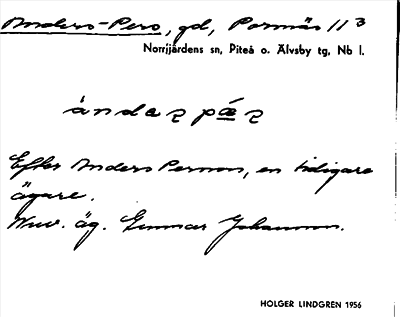 Anders-Pers, gd, Porsnäs 11³
Norrfjärdens sn, Piteå o. Älvsby tg, Nb l.
ándaʂ pæʂ
Efter Anders Persson, en tidigare
ägare.
Nuv. äg. Gunnar Johansson.
HOLGER LINDGREN 1956